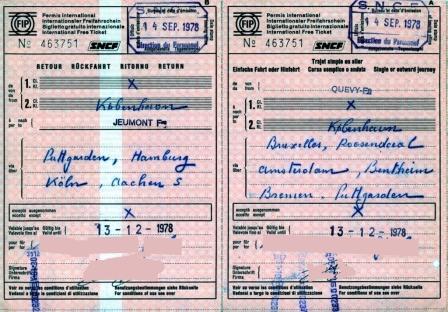 B
FIP
Permis international
Internationaler Freifahrschein
Biglietto gratuito internazionale
International Free Ticket
14 SEP. 1978
Direction du Personnel
No 463751 SNCF
RETOUR RÜCKFAHRT RITORNO RETURN
1. Cl. Kl. X
de von da from
2. Cl. Kl. København
à nach per to
JEUMONT Fre
via über
Puttgarden, Hamburg
Köln, Aachen S
excepté ausgenommen
eccetto except X
Valable jusqu'au Gültig bis
Valevole fino al Valid until 13-12-1978
pour für
per for
Signature
Unterschrift
Firma
Voir au verso les conditions d'utilisation
Vedere a tergo le condizioni di utilizzazione
Benutzungsbestimmungen siehe Rückseite
For conditions of use see over
A
FIP
Permis international
Internationaler Freifahrschein
Biglietto gratuito internazionale
International Free Ticket
14 SEP. 1978
Direction du Personnel
No 463751 SNCF
Trajet simple ou aller
Einfache Fahrt oder Hinfahrt Corsa semplice o andata Single or outward journey
1. Cl. Kl. X
de von da from
QUEVY-Fre
2. Cl. Kl.
à nach per to
København
via über
Bruxelles, Roosendaal
Amsterdam, Bentheim
Bremen, Puttgarden
excepté ausgenommen
eccetto except X
Valable jusqu'au Gültig bis
Valevole fino al Valid until 13-12-1978
pour für
per for
Signature
Unterschrift
Firma
Voir au verso les conditions d'utilisation
Vedere a tergo le condizioni di utilizzazione
Benutzungsbestimmungen siehe Rückseite
For conditions of use see over